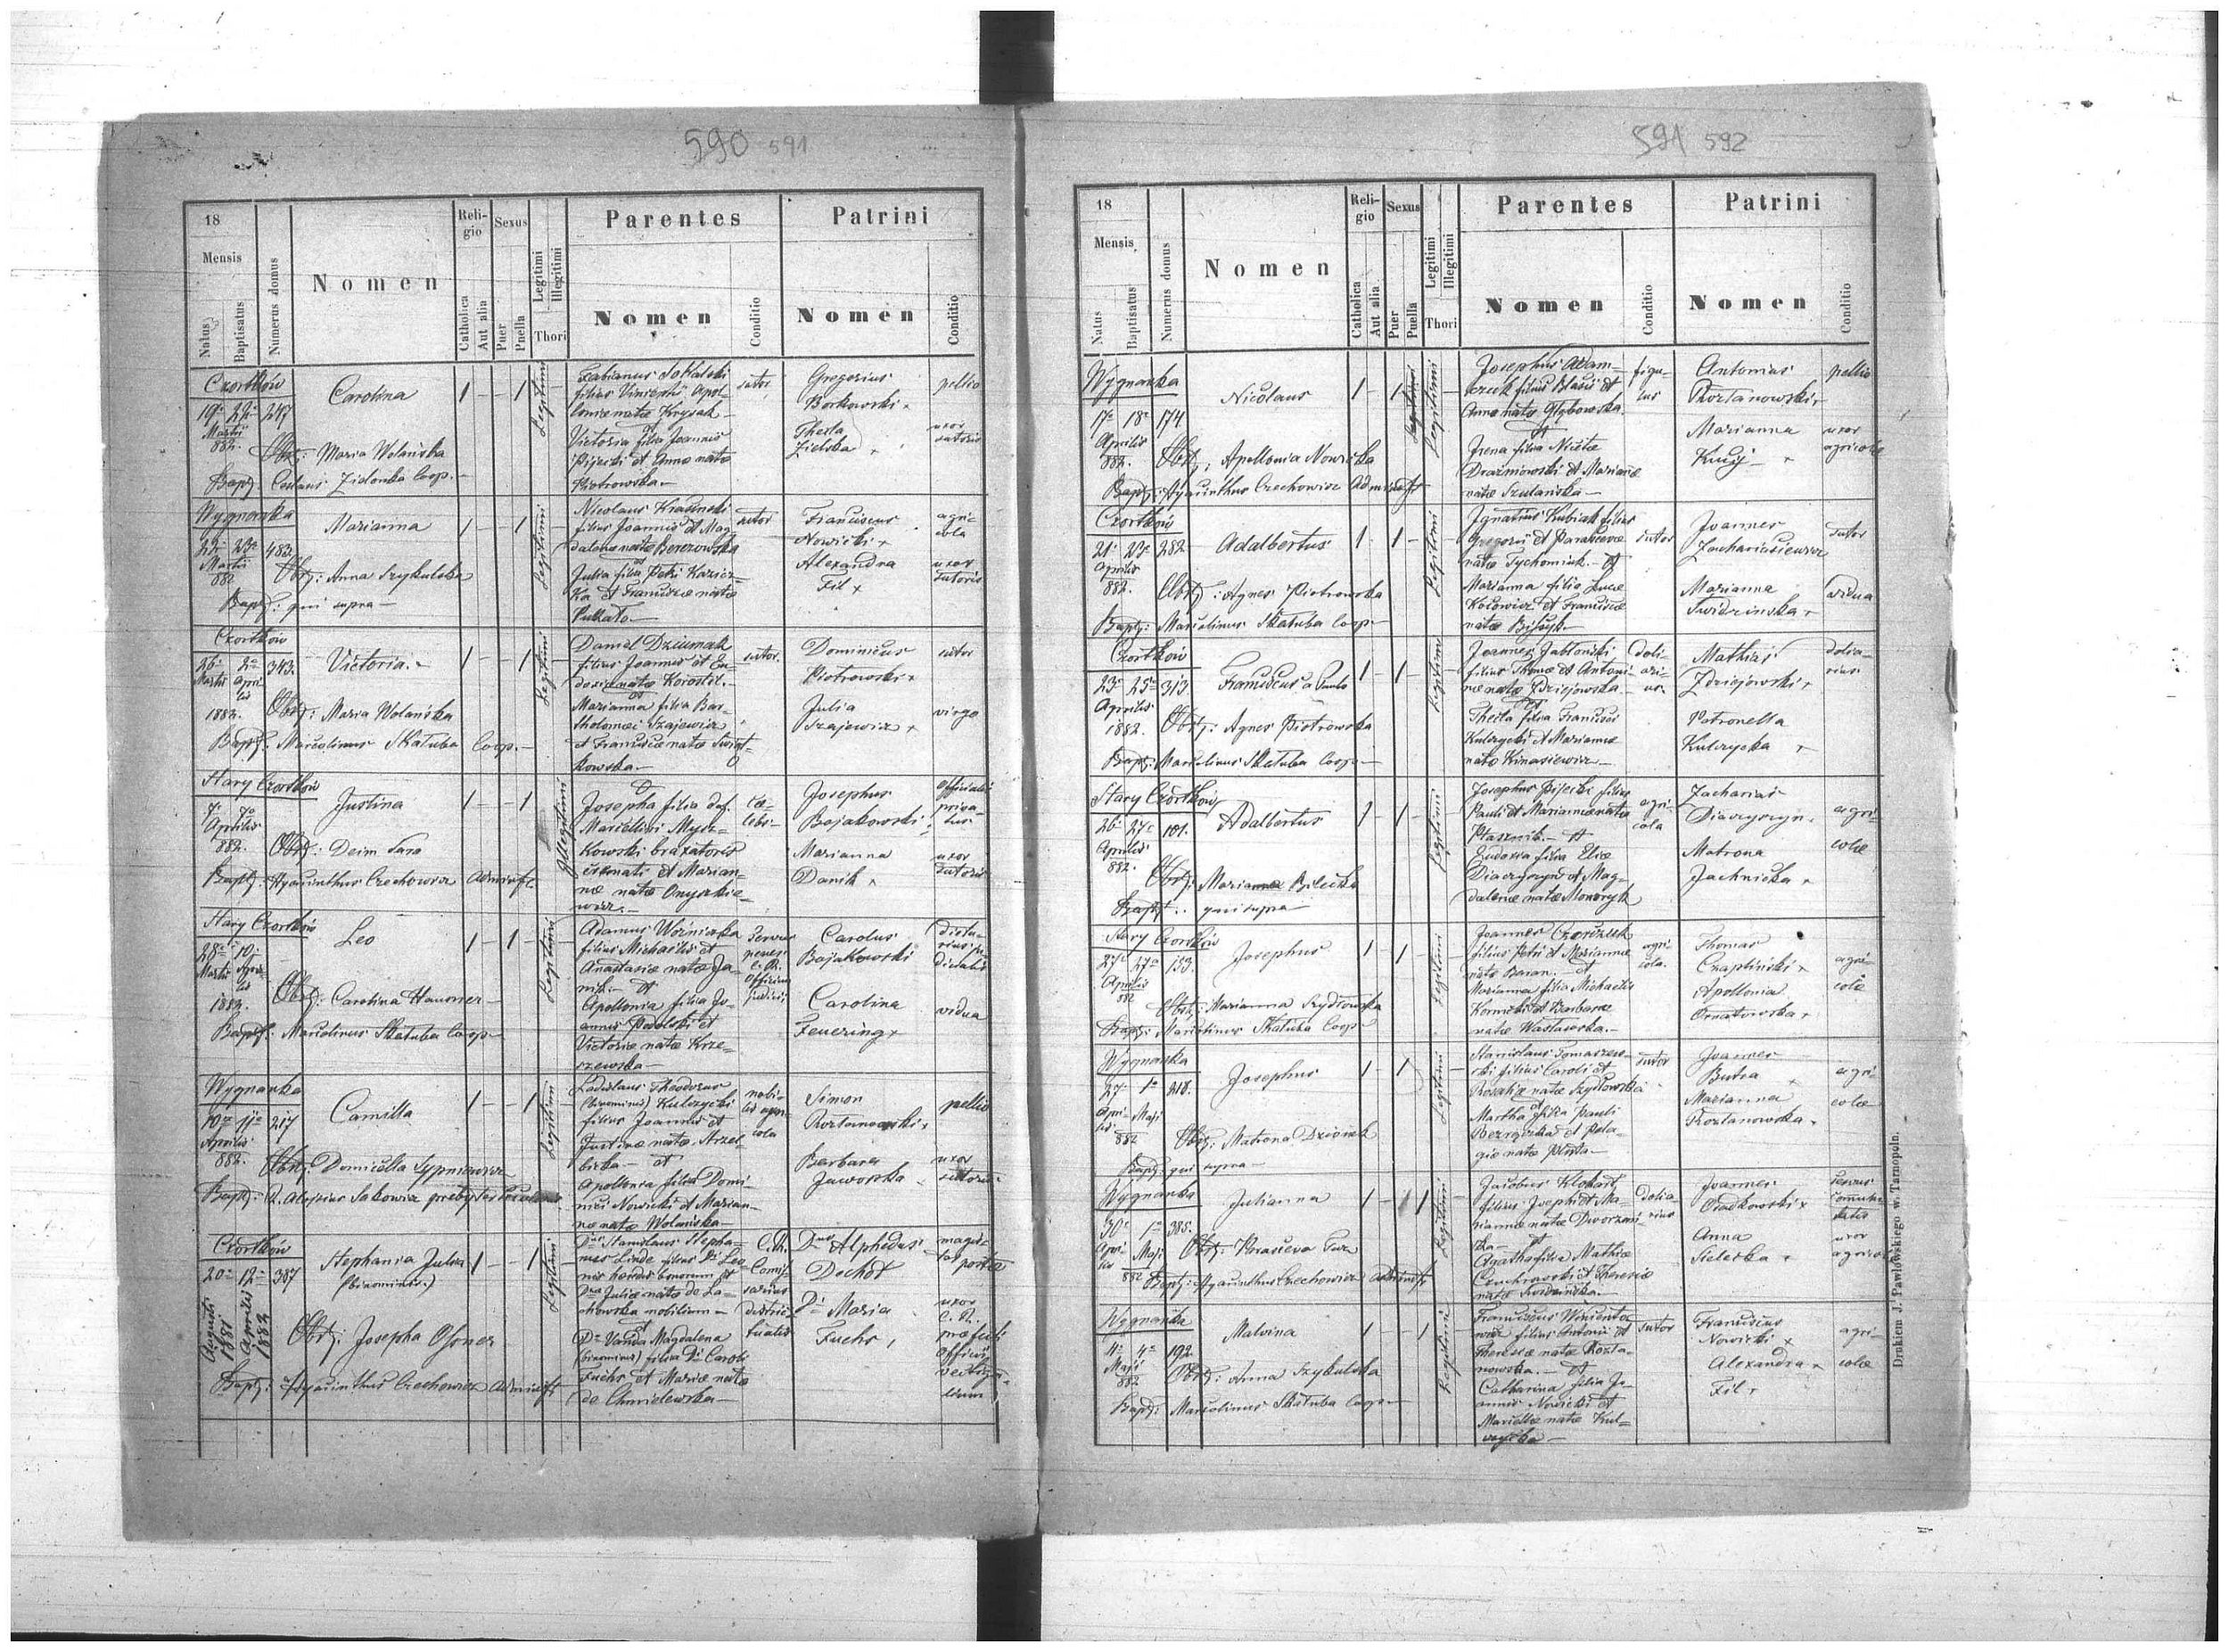 590 591
18
Mensis
Natus
Baptisatus
Numerus domus
Nomen
Religio
Catholica
Aut alia
Sexus
Puer
Puella
Legitimi
Illegitimi
Thori
Parentes
Nomen
Conditio
Patrini
Nomen
Conditio
Czortków
19 22 247
Martii
882.
Carolina
Obst: Maria Wolańska
Bapt: Ceslaus Zidonka Coop.
Legitimi
Fabianus Sobański
filius Vincenti, Apol-
loniæ natæ Krysak
et
Victoria filia Joannis
Pijecki et Annæ natæ
Piotrowska
sutor
Gregorius
Borkowski
Thecla
Zielska
pellio
uxor
sutoris
Wygnanka
22 23 483
Martii
882
Marianna
Obst: Anna Szykulska
Bapt: qui supra
Legitimi
Nicolaus Krasinski
filius Joannis et Mag-
dalenæ natæ Berezowska
et
Julia filia Petri Kazier-
ka et Franciscæ natæ
sutor
Franciscus
Nowicki
Alexandra
Fil
agri-
cola
uxor
sutoris
Czortków
26 2 343.
Martii Apri-
lis
1882.
Victoria
Obst: Maria Wolańska
Bapt: Marcolinus Skałuba Coop.
Legitimi
Daniel Dziumak
filius Joannis et Eu-
doxiæ natæ Korostil.
et
Marianna filia Bar-
tholomæi Szajewicz
et Franciscæ natæ Swiąt-
kowska
sutor.
Dominicus
Piotrowski
Julia
Szajewicz
sutor
virgo
Stary Czortków
7 7
Aprilis
882.
Justina
Obst: Deim Sara
Bapt: Hyacinthus Czechowicz Administr.
Illegitimi
Josepha filia def.
Marcellini Mysz-
kowski braxatoris
et Marian-
næ natæ Onyszkie-
wicz.
cæ-
lebs
Josephus
Bojakowski
Marianna
Danik
officialis
priva-
tus
uxor
sutoris
Stary Czortków
28 10
Martii Apri-
lis
1882.
Leo
Obst: Carolina Hausner
Bapt: Marcolinus Skałuba Coop
Legitimi
Adamus Wozniaka
filius Michaelis et
Anastasiæ natæ Ja-
nik. et
Apollonia filia Jo-
annis Podolski et
Victoriæ natæ Krze-
szewska
Servus
penes
C. R.
Officium
judicii
Carolus
Bojakowski
Carolina
Feuering
vidua
Wygnanka
10 11 217
Aprilis
882.
Camilla
Obst: Domicella Sypniewicz
Bapt: R. Aloysius Sakowicz presbyter sæcularis
Legitimi
Ladislaus Theodorus
(binominis) Kulczycki
filius Joannis et
Justinæ natæ Strzel-
bicka et
Apollonia filia Domi-
nici Nowicki et Marian-
næ natæ Wolańska
nobi-
lis agri-
cola
Simon
Roztanowski
Barbara
Jaworska
pellio
uxor
sutoris
Czortków
20 12 387
Augusti 1881
Aprilis 1882
Stephania Julia
(binominis)
Obst: Josepha Ohsner
Bapt: Hyacinthus Czechowicz Administr
Legitimi
Dnus Stanislaus Stepha-
nus Linde filius Di Leo-
nis hæredis bonorum et
Dnæ Juliæ natæ de La-
chowska nobilium
et
Dna Vanda Magdalena
(binominis) filia Di Caroli
Fuchs et Mariæ natæ
de Chmielewska
C. R.
Comis-
sarius
district-
tualis
Dnus Alphedus
Dochot
Di Maria
Fuchs
magis-
ter postæ
uxor
C. R.
præfecti
officii
vectiga-
lium
591 592
18
Mensis
Natus
Baptisatus
Numerus domus
Nomen
Religio
Catholica
Aut alia
Sexus
Puer
Puella
Legitimi
Illegitimi
Thori
Parentes
Nomen
Conditio
Patrini
Nomen
Conditio
Wygnanka
17 18 174
Aprilis
882.
Nicolaus
Obst: Apollonia Nowicka
Bapt: Hyacinthus Czechowicz Administr
Legitimi
Josephus Adam-
czuk filius Blasii et
Annæ natæ Głębowska
et
Irena filia Nicetæ
Drazniowski et Mariannæ
natæ Szulańska
figu-
lus
Antonius
Roztanowski
Marianna
Kucij
pellio
uxor
agricolæ
Czortków
21 23 282
Aprilis
882.
Adalbertus
Obst: Agnes Piotrowska
Bapt: Marcolinus Skałuba Coop
Legitimi
Ignatius Kubiak filius
Gregorii et Parasceviæ
natæ Tychoniuk et
Marianna filia Lucæ
Kołowicz et Franciscæ
natæ Bijsyk
sutor
Joannes
Zachariasiewicz
Marianna
Swidzinska
sutor
vidua
Czortków
23 25 313
Aprilis
1882.
Franciscus a Paulo
Obst: Agnes Piotrowska
Bapt: Marcolinus Skałuba Coop
Legitimi
Joannes Jabłonski
filius Thomæ et Antoni-
næ natæ Zdziejowska
et
Thecla filia Francisci
Kulczycki et Mariannæ
natæ Kinasiewicz
doli-
ari-
us
Mathias
Zdziejowski
Petronella
Kulczycka
dolia-
rius
Stary Czortków
26 27 101.
Aprilis
882.
Adalbertus
Obst: Marianna Bilecka
Bapt: qui supra
Legitimi
Josephus Pijecki filius
Pauli et Mariannæ natæ
Ptasznik et
Eudoxia filia Eliæ
Diaczyszyn et Mag-
dalenæ natæ Monczyk
agri-
cola
Zacharias
Diaczyszyn
Matrona
Jachnicka
agri-
colæ
Stary Czortków
27 27 153
Aprilis
882
Josephus
Obst: Marianna Szydłowska
Bapt: Marcolinus Skałuba Coop
Legitimi
Joannes Czorszuk
filius Petri et Mariannæ
natæ Baran. et
Marianna filia Michaelis
Kornicki et Barbaræ
natæ Wasławska.
agri-
cola.
Thomas
Czapliński
Apollonia
Ornatowska
agri-
colæ
Wygnanka
27 1 218.
Apri- Maji
lis
882
Josephus
Obst: Matrona Dziomak
Bapt: qui supra
Legitimi
Stanislaus Tomaszew-
ski filius Caroli et
Rosaliæ natæ Szydłowska
et
Martha filia Pauli
et Pela-
giæ natæ
sutor
Joannes
Butra
Marianna
Roztanowska
agri-
colæ
Wygnanka
30 1 385.
Apri- Maji
lis
882
Julianna
Obst: Parasceva Tur
Bapt: Hyacinthus Czechowicz Administr
Legitimi
Jacobus Klohart
filius Josephi et Ma-
riannæ natæ Dworzań-
ska et
Agatha filia Mathiæ
Czuchrowski et Theresiæ
natæ Swidzińska.
dolia-
rius
Joannes
Osadkowski
Anna
Sielecka
servus
comuni-
tatis
uxor
agricolæ
Wygnanka
4 4 192.
Maji
882
Malvina
Obst: Anna Szykulska
Bapt: Marcolinus Skałuba Coop
Legitimi
Franciscus Winiento-
wicz filius Antonii et
Theresiæ natæ Rozta-
nowska. et
Catharina filia Jo-
annis Nowicki et
Mariellæ natæ Kul-
czycka
sutor
Franciscus
Nowicki
Alexandra
Fil
agri-
colæ
Drukiem J. Pawłowskiego w Tarnopolu.